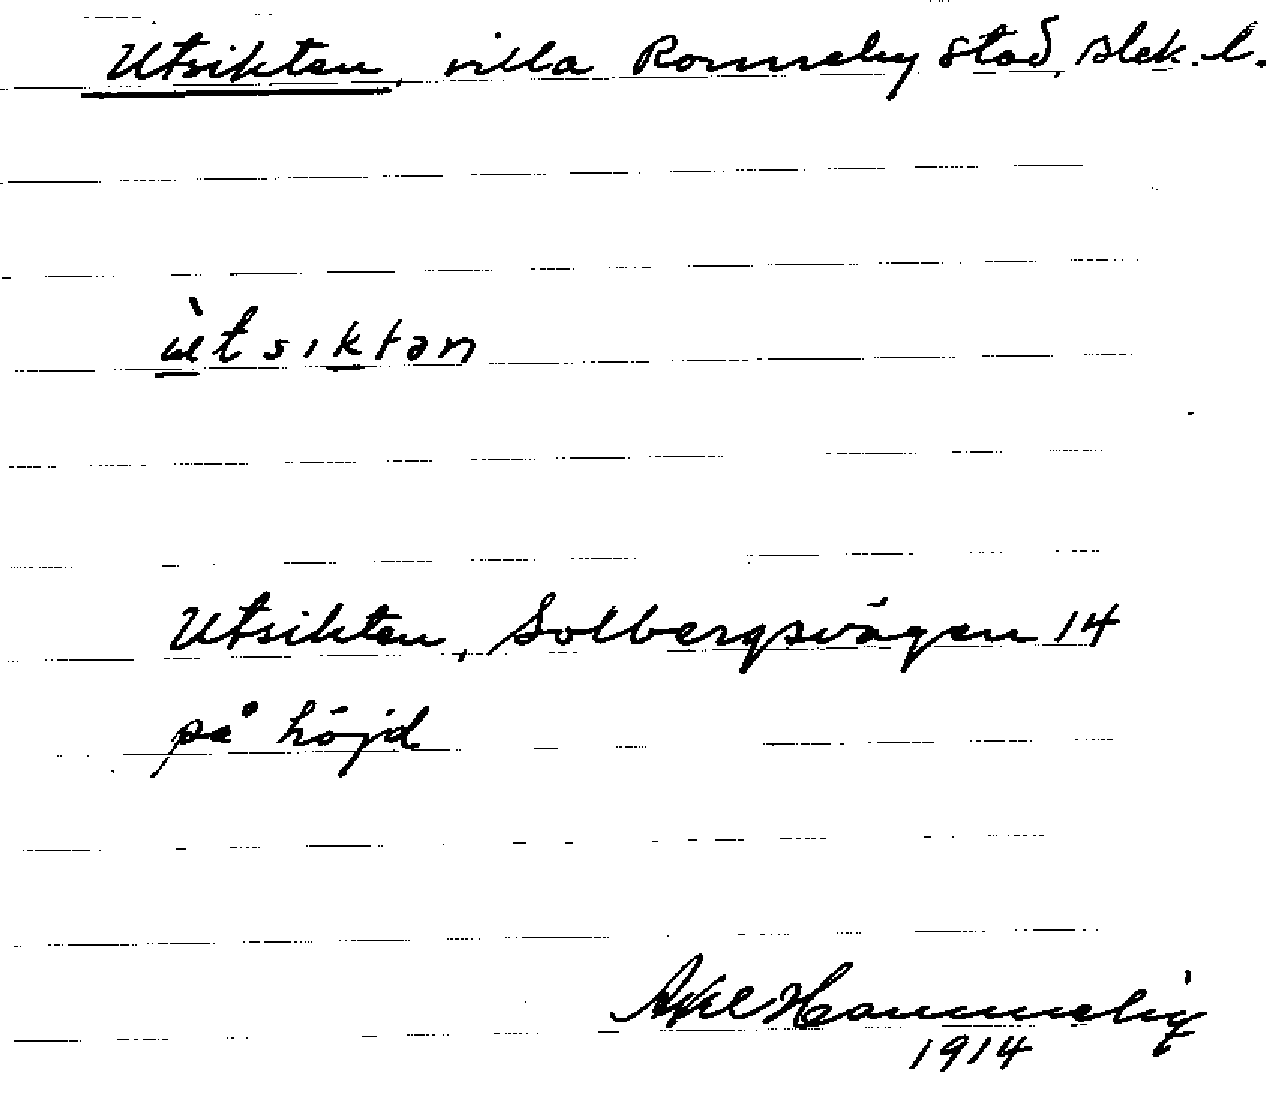 Utsikten, villa Ronneby stad, Blek. l.
ùtsiktən
Utsikten, Solbergsvägen 14
på höjd
Axel
1914